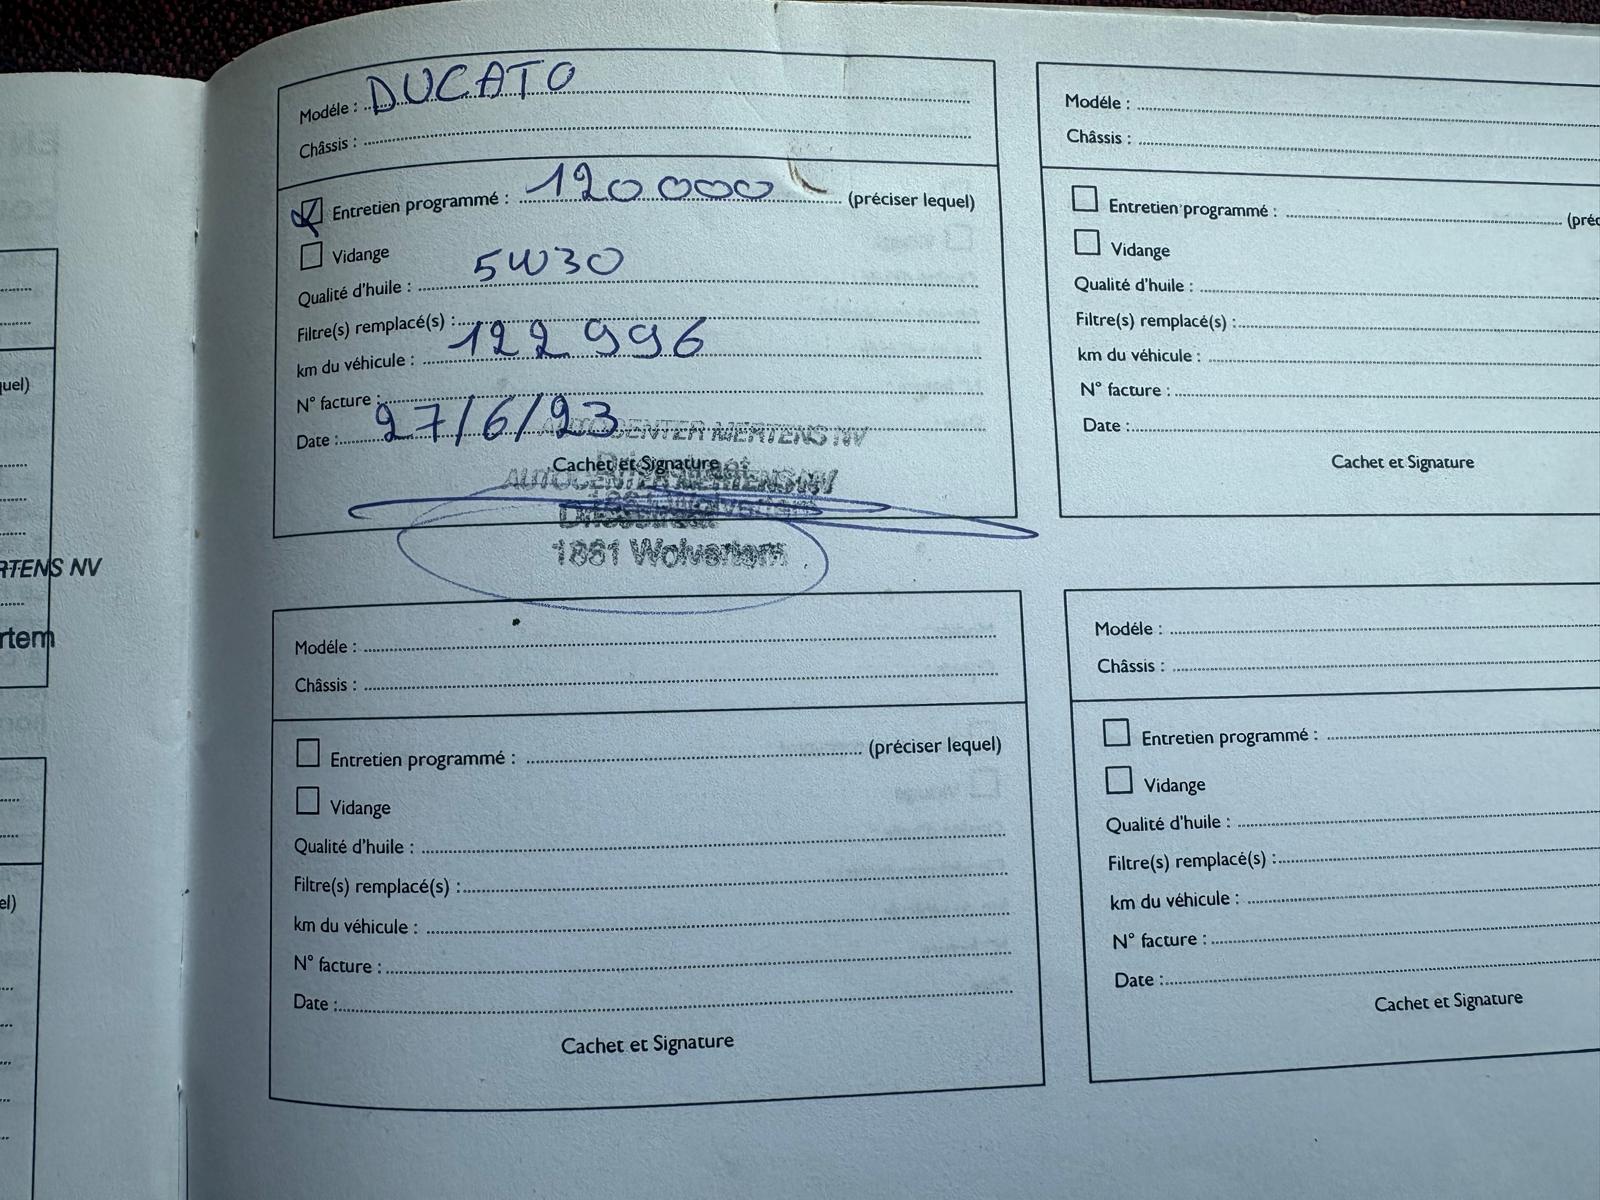 Modéle : DUCATO
Châssis :
Entretien programmé : 120 000 (préciser lequel)
Vidange
Qualité d'huile : 5W30
Filtre(s) remplacé(s) :
km du véhicule : 122 996
N° facture :
Date : 27/6/23
AUTOCENTER MERTENS NV
Cachet et Signature
AUTOCENTER MERTENS NV
1861 Wolvertem
1861 Wolvertem
Modéle :
Châssis :
Entretien programmé :
Vidange
Qualité d'huile :
Filtre(s) remplacé(s) :
km du véhicule :
N° facture :
Date :
Cachet et Signature
Modéle :
Châssis :
Entretien programmé : (préciser lequel)
Vidange
Qualité d'huile :
Filtre(s) remplacé(s) :
km du véhicule :
N° facture :
Date :
Cachet et Signature
Modéle :
Châssis :
Entretien programmé :
Vidange
Qualité d'huile :
Filtre(s) remplacé(s) :
km du véhicule :
N° facture :
Date :
Cachet et Signature